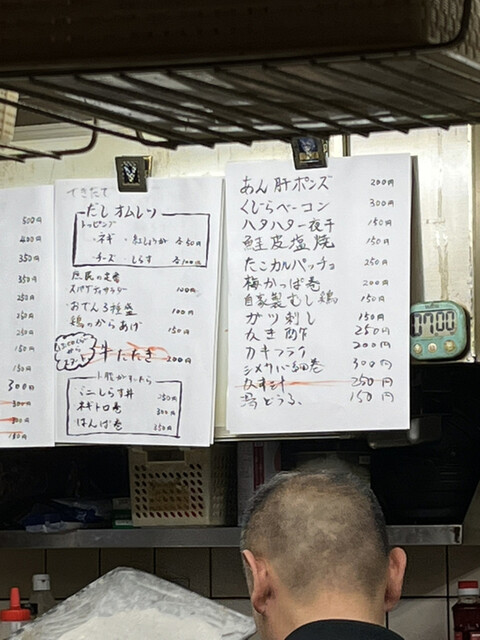 500円
400円
350円
350円
250円
250円
250円
150円
150円
300円
150円
できたて
だし オムレツ
トッピング
・ネギ ・紅しょうが 各50円
・チーズ ・しらす 各100円
庶民の定番
スパゲティサラダー 100円
おでん3種盛 100円
鶏のからあげ 150円
牛たたき 200円
小腹がすいたら
ミニしらす丼 250円
ネギトロ巻 300円
はんぱ巻 350円
あん肝ポンズ 200円
くじらベーコン 300円
ハタハタ一夜干 150円
鮭皮塩焼 150円
たこカルパッチョ 250円
梅かっぱ巻 200円
自家製むし鶏 150円
ガツ刺し 150円
かき酢 250円
カキフライ 200円
シメサバ細巻 300円
かす汁 250円
湯どうふ 150円
07:00